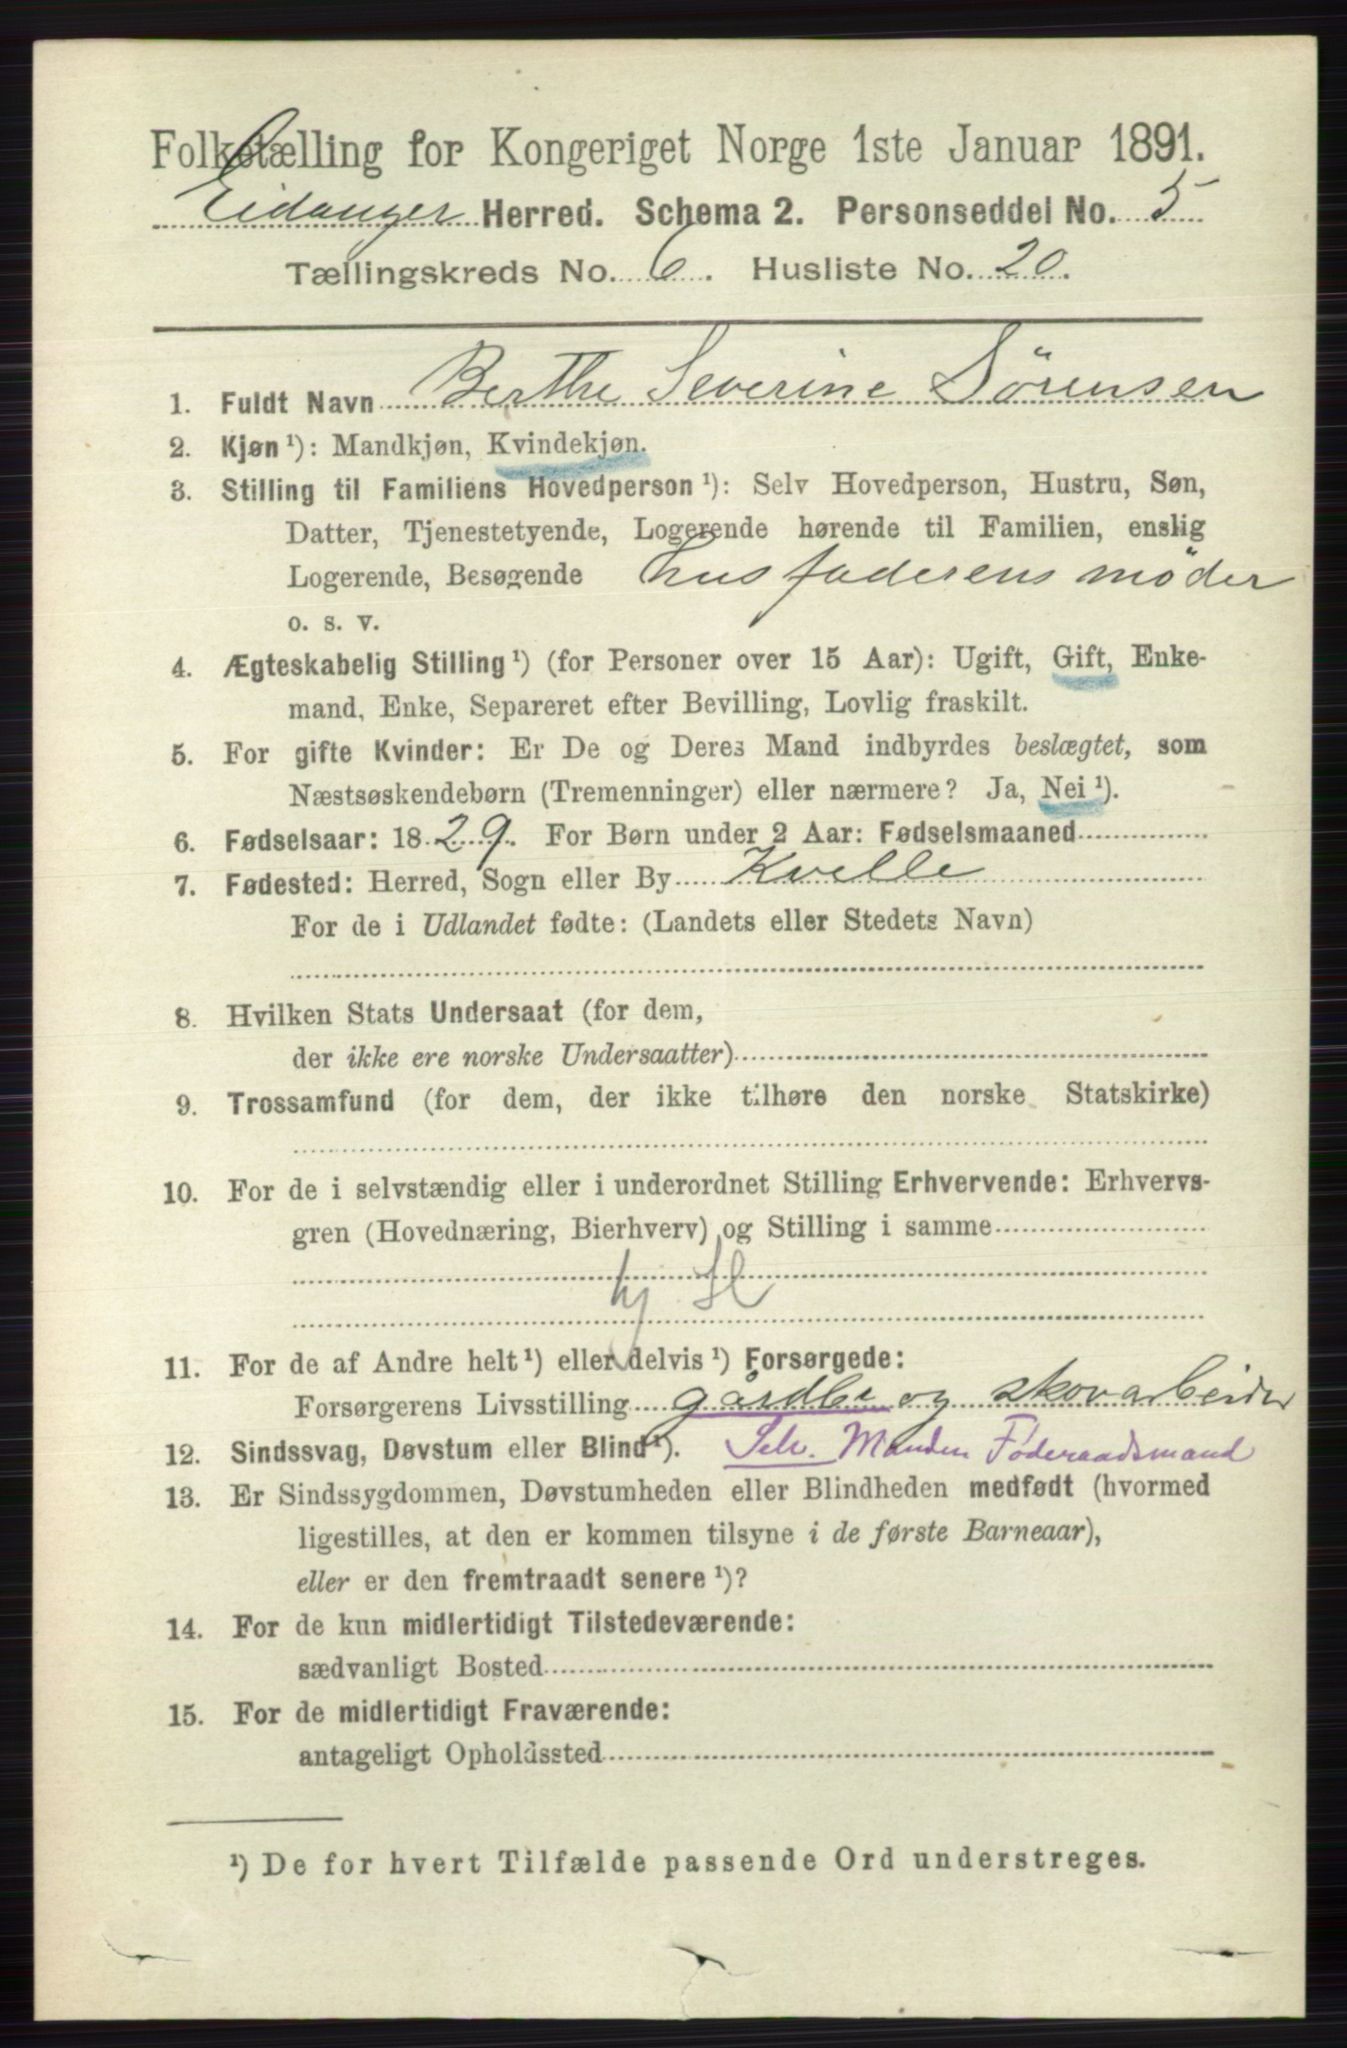 Folketælling for Kongeriget Norge 1ste Januar 1891.
Eidanger Herred. Schema 2. Personseddel No. 5
Tællingskreds No. 6. Husliste No. 20.
1. Fuldt Navn Berthe Severine Sörensen
2. Kjøn ¹): Mandkjøn, Kvindekjøn.
3. Stilling til Familiens Hovedperson ¹): Selv Hovedperson, Hustru, Søn,
Datter, Tjenestetyende, Logerende hørende til Familien, enslig
Logerende, Besøgende husfaderens møder
o. s. v.
4. Ægteskabelig Stilling ¹) (for Personer over 15 Aar): Ugift, Gift, Enke-
mand, Enke, Separeret efter Bevilling, Lovlig fraskilt.
5. For gifte Kvinder: Er De og Deres Mand indbyrdes beslægtet, som
Næstsøskendebørn (Tremenninger) eller nærmere? Ja, Nei ¹).
6. Fødselsaar: 1829. For Børn under 2 Aar: Fødselsmaaned
7. Fødested: Herred, Sogn eller By Kvelle
For de i Udlandet fødte: (Landets eller Stedets Navn)
8. Hvilken Stats Undersaat (for dem,
der ikke ere norske Undersaatter)
9. Trossamfund (for dem, der ikke tilhøre den norske Statskirke)
10. For de i selvstændig eller i underordnet Stilling Erhvervende: Erhvervs-
gren (Hovednæring, Bierhverv) og Stilling i samme
hj. Sl
11. For de af Andre helt ¹) eller delvis ¹) Forsørgede:
Forsørgerens Livsstilling gårdbr og skovarbeider
12. Sindssvag, Døvstum eller Blind ¹). Selv. Manden Föderaadsmand
13. Er Sindssygdommen, Døvstumheden eller Blindheden medfødt (hvormed
ligestilles, at den er kommen tilsyne i de første Barneaar),
eller er den fremtraadt senere ¹)?
14. For de kun midlertidigt Tilstedeværende:
sædvanligt Bosted
15. For de midlertidigt Fraværende:
antageligt Opholdssted
¹) De for hvert Tilfælde passende Ord understreges.